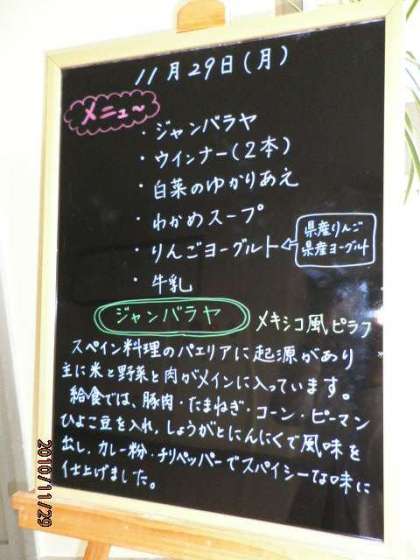 11月29日(月)
メニュ〜
・ジャンバラヤ
・ウインナー(2本)
・白菜のゆかりあえ
・わかめスープ
・りんごヨーグルト
県産りんご
県産ヨーグルト
・牛乳
ジャンバラヤ メキシコ風ピラフ
スペイン料理のパエリアに起源があり
主に米と野菜と肉がメインに入っています。
給食では、豚肉・たまねぎ・コーン・ピーマン
ひよこ豆を入れ、しょうがとにんにくで風味を
出し、カレー粉・チリペッパーでスパイシーな味に
仕上げました。
2010/11/29